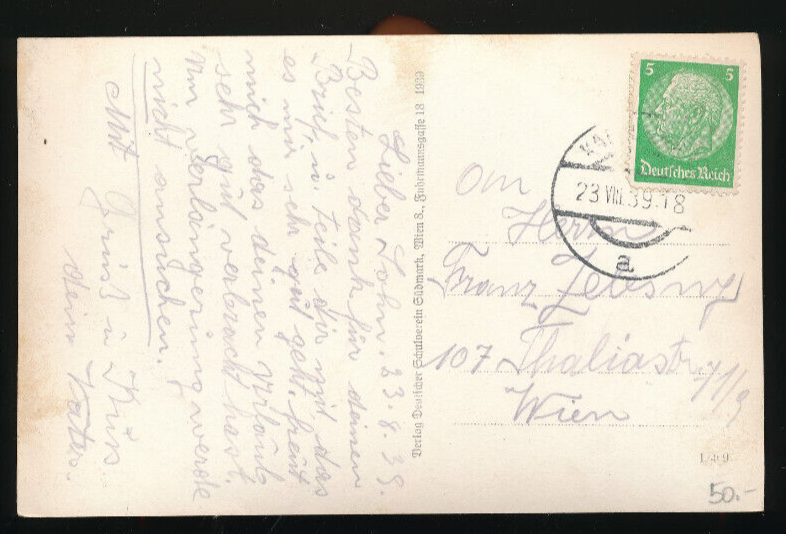 Lieber Sohn. 23.8.39.
Besten dank für deinen
Brief, u. teile dir mit das
es mir sehr gut geht. freut
mich das deinen Urlaub
sehr gut verbracht hast.
Um verlängerung werde
nicht ansuchen.
Mit Gruß u Kuss
dein Vater.
Verlag Deutscher Schulverein Südmark, Wien 8., Fuhrmannsgasse 18
5 5
Deutsches Reich
23 VIII 39.18
a
An
Herrn
Franz
107 Thaliastr.
Wien
50.-